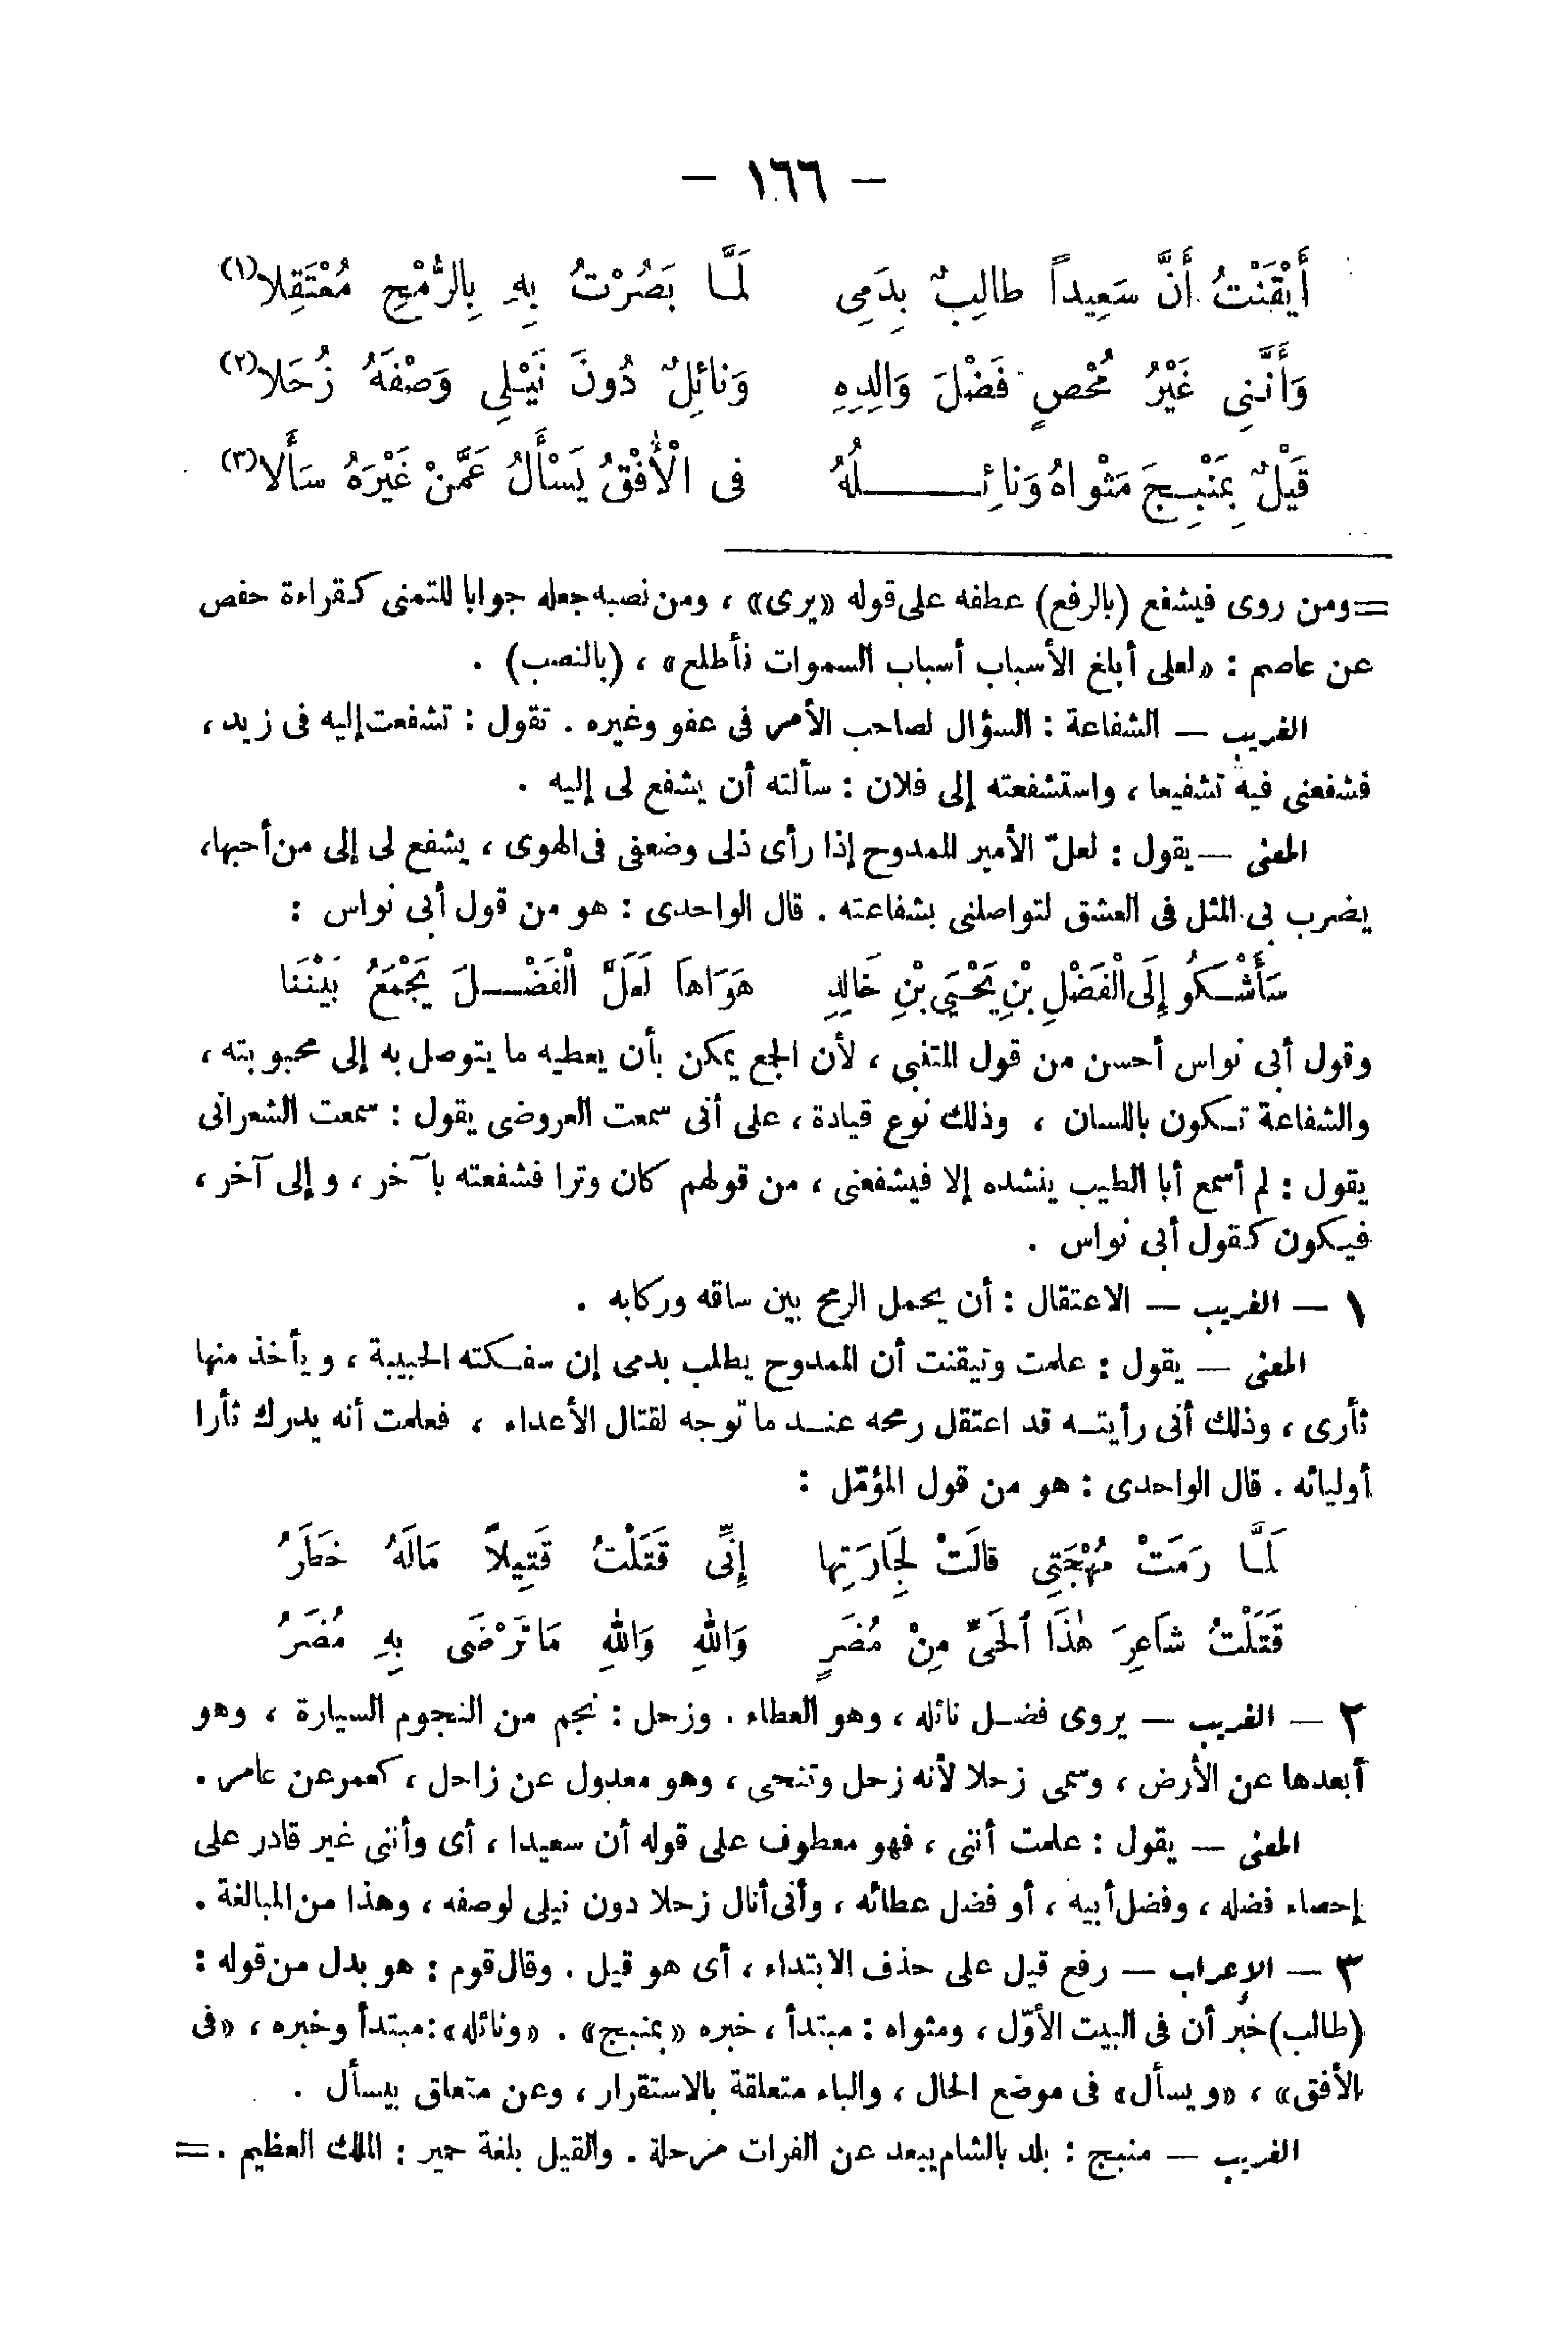 – ١٦٦ –
أَيْقَنْتُ أَنَّ سَعِيداً طالِبٌ بِدَمِى لَمَّا بَصُرْتُ بِهِ بِالرُّمْحِ مُعْتَقِلا(١)
وَأَنَّنِى غَيْرُ مُحْصٍ فَضْلَ وَالِدِهِ وَنائِلٌ دُونَ نَيْلِى وَصْفَهُ زُحَلا(٢)
قَيْلٌ بِمَنْبِجَ مَثْواهُ وَنائِلُهُ فى الْأُفْقُ يَسْأَلُ عَمَّنْ غَيْرَهُ سَأَلا(٣)
=ومن روى فيشفع (بالرفع) عطفه على قوله «يرى» ، ومن نصبه جعله جوابا للتمنى كقراءة حفص
عن عاصم : «لعلى أبلغ الأسباب أسباب السموات فأطلع» ، (بالنصب) .
الغريب – الشفاعة : السؤال لصاحب الأمر فى عفو وغيره . تقول : تشفعت إليه فى زيد ،
فشفعنى فيه تشفيعا ، واستشفعته إلى فلان : سألته أن يشفع لى إليه .
المعنى – يقول : لعلّ الأمير الممدوح إذا رأى ذلى وضعفى فى الهوى ، يشفع لى إلى من أحبها،
يضرب بى المثل فى العشق لتواصلنى بشفاعته . قال الواحدى : هو من قول أبى نواس :
سَأَشْكُو إِلَى الْفَضْلِ بْنِ يَحْيَى بْنِ خَالِدٍ هَوَاهاَ لَعَلَّ الْفَضْلَ يَجْمَعُ بَيْنَنَا
وقول أبى نواس أحسن من قول المتنبى ، لأن الجمع يمكن بأن يعطيه ما يتوصل به إلى محبوبته ،
والشفاعة تكون باللسان ، وذلك نوع قيادة ، على أنى سمعت العروضى يقول : سمعت الشعرانى
يقول : لم أسمع أبا الطيب ينشده إلا فيشفعنى ، من قولهم كان وترا فشفعته بآخر ، وإلى آخر ،
فيكون كقول أبى نواس .
١ – الغريب – الاعتقال : أن يحمل الرمح بين ساقه وركابه .
المعنى – يقول : علمت وتيقنت أن الممدوح يطلب بدمى إن سفكته الحبيبة ، ويأخذ منها
ثأرى ، وذلك أنى رأيته قد اعتقل رمحه عند ما توجه لقتال الأعداء ، فعلمت أنه يدرك ثأرا
أوليائه . قال الواحدى : هو من قول المؤمّل :
لَمَّا رَمَتْ مُهْجَتِى قالَتْ لِجَارَتِها إِنِّى قَتَلْتُ قَتِيلاً مَالَهُ خَطَرُ
قَتَلْتُ شاَعِرَ هٰذَا الْحَىِّ مِنْ مُضَرٍ وَاللهِ وَاللهِ مَا تَرْضَى بِهِ مُضَرُ
٢ – الغريب – يروى فضل نائله ، وهو العطاء . وزحل : نجم من النجوم السيارة ، وهو
أبعدها عن الأرض ، وسمى زحلا لأنه زحل وتنحى ، وهو معدول عن زاحل ، كعمر عن عامر .
المعنى – يقول : علمت أننى ، فهو معطوف على قوله أن سعيدا ، أى وأننى غير قادر على
إحصاء فضله ، وفضل أبيه ، أو فضل عطائه ، وأنى أنال زحلا دون نيلى لوصفه ، وهذا من المبالغة .
٣ – الإعراب – رفع قيل على حذف الابتداء ، أى هو قيل . وقال قوم : هو بدل من قوله :
(طالب) خبر أن فى البيت الأوّل ، ومثواه : مبتدأ ، خبره «بمنبج» . «ونائله» : مبتدأ وخبره ، «فى
الأفق» ، «ويسأل» فى موضع الحال ، والباء متعلقة بالاستقرار ، وعن متعلق بيسأل .
الغريب – منبج : بلد بالشام يبعد عن الفرات مرحلة . والقيل بلغة حمير : الملك العظيم . =